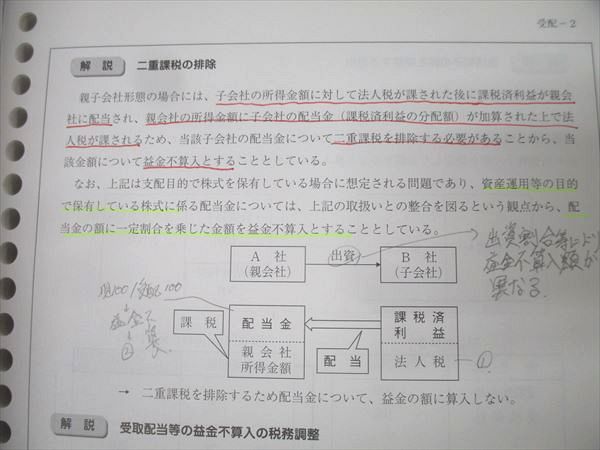 受配－2
解説 二重課税の排除
親子会社形態の場合には、子会社の所得金額に対して法人税が課された後に課税済利益が親会
社に配当され、親会社の所得金額に子会社の配当金（課税済利益の分配額）が加算された上で法
人税が課されるため、当該子会社の配当金について二重課税を排除する必要があることから、当
該金額について益金不算入とすることとしている。
なお、上記は支配目的で株式を保有している場合に想定される問題であり、資産運用等の目的
で保有している株式に係る配当金については、上記の取扱いとの整合を図るという観点から、配
当金の額に一定割合を乗じた金額を益金不算入とすることとしている。
A 社
（親会社）
出資
B 社
（子会社）
出資割合等により
益金不算入額が
異なる.
100/
100
益金不
②
課税
配当金
親会社
所得金額
配当
課税済
利益
法人税
①
→ 二重課税を排除するため配当金について、益金の額に算入しない。
解説 受取配当等の益金不算入の税務調整